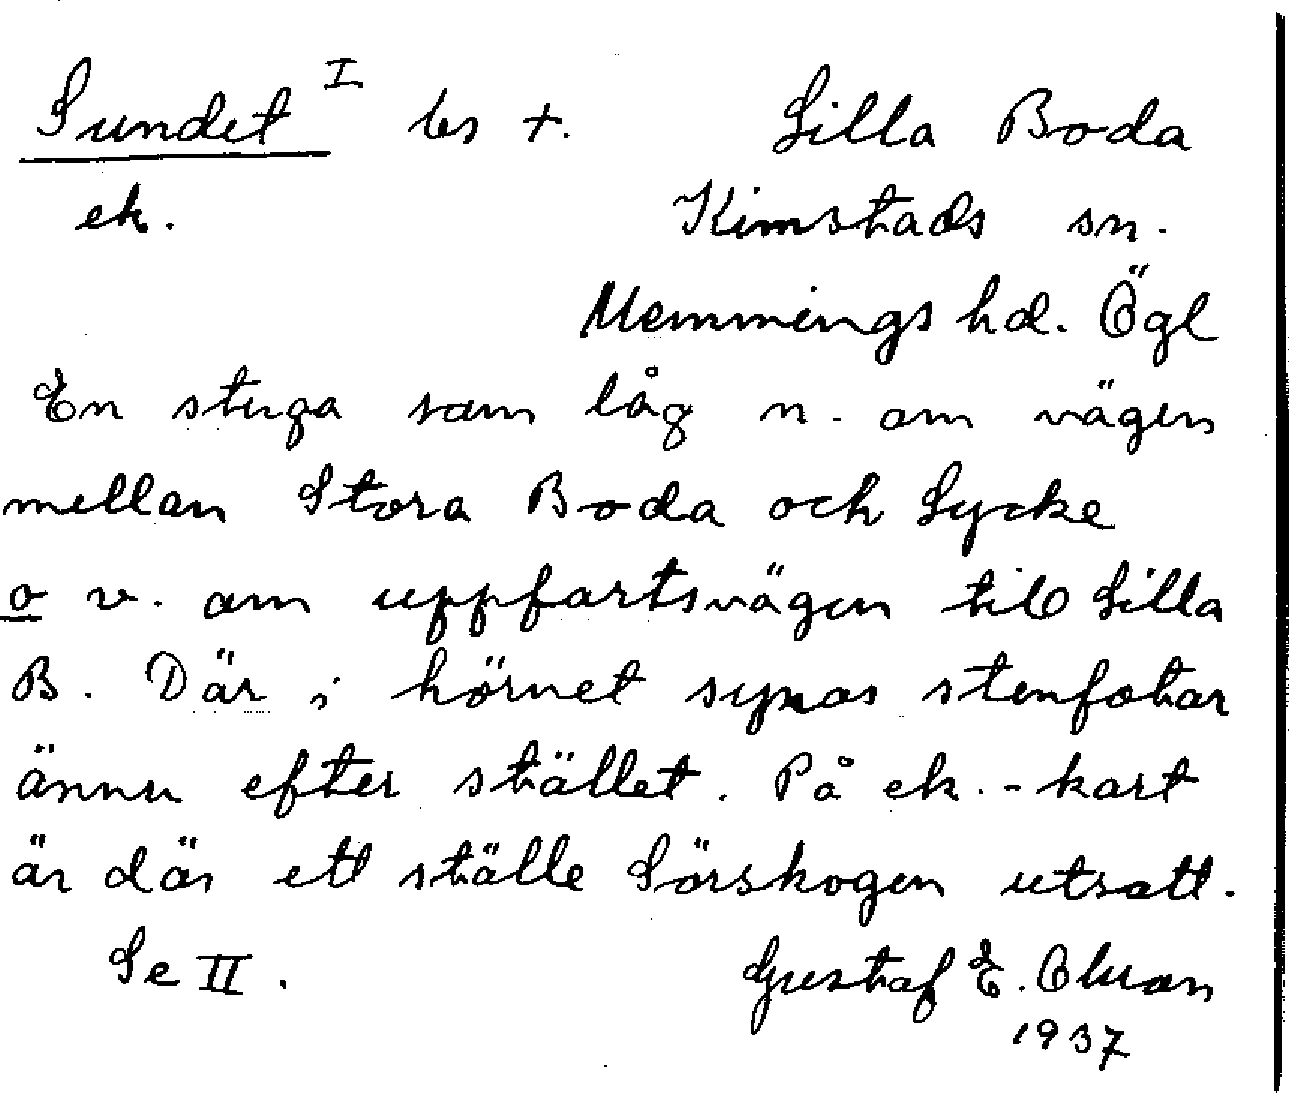 Sundet I les +. Lilla Boda
ek. Kimstads sn.
Memmings hd. Ögl
En stuga som låg n. om vägen
mellan Stora Boda och Lycke
o v. om uppfartsvägen till Lilla
B. Där i hörnet synas stenfotar
ännu efter stället. På ek.-kart
är där ett ställe Sörskogen utsatt.
Se II. Gustaf E.
1937